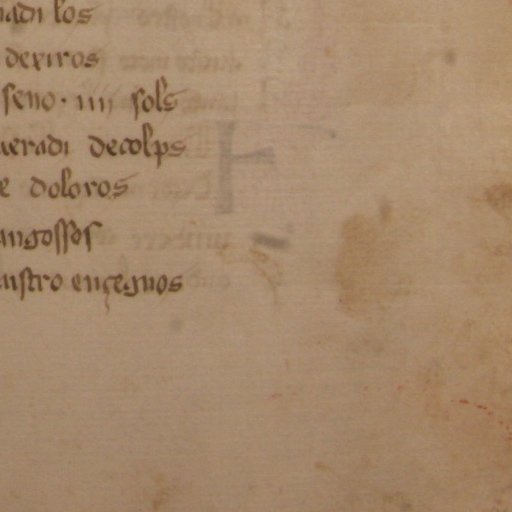 nadi los
dexiros
seno · iiii sol's
ueradi de colps
e doloros
angossos
uistro ençegnos